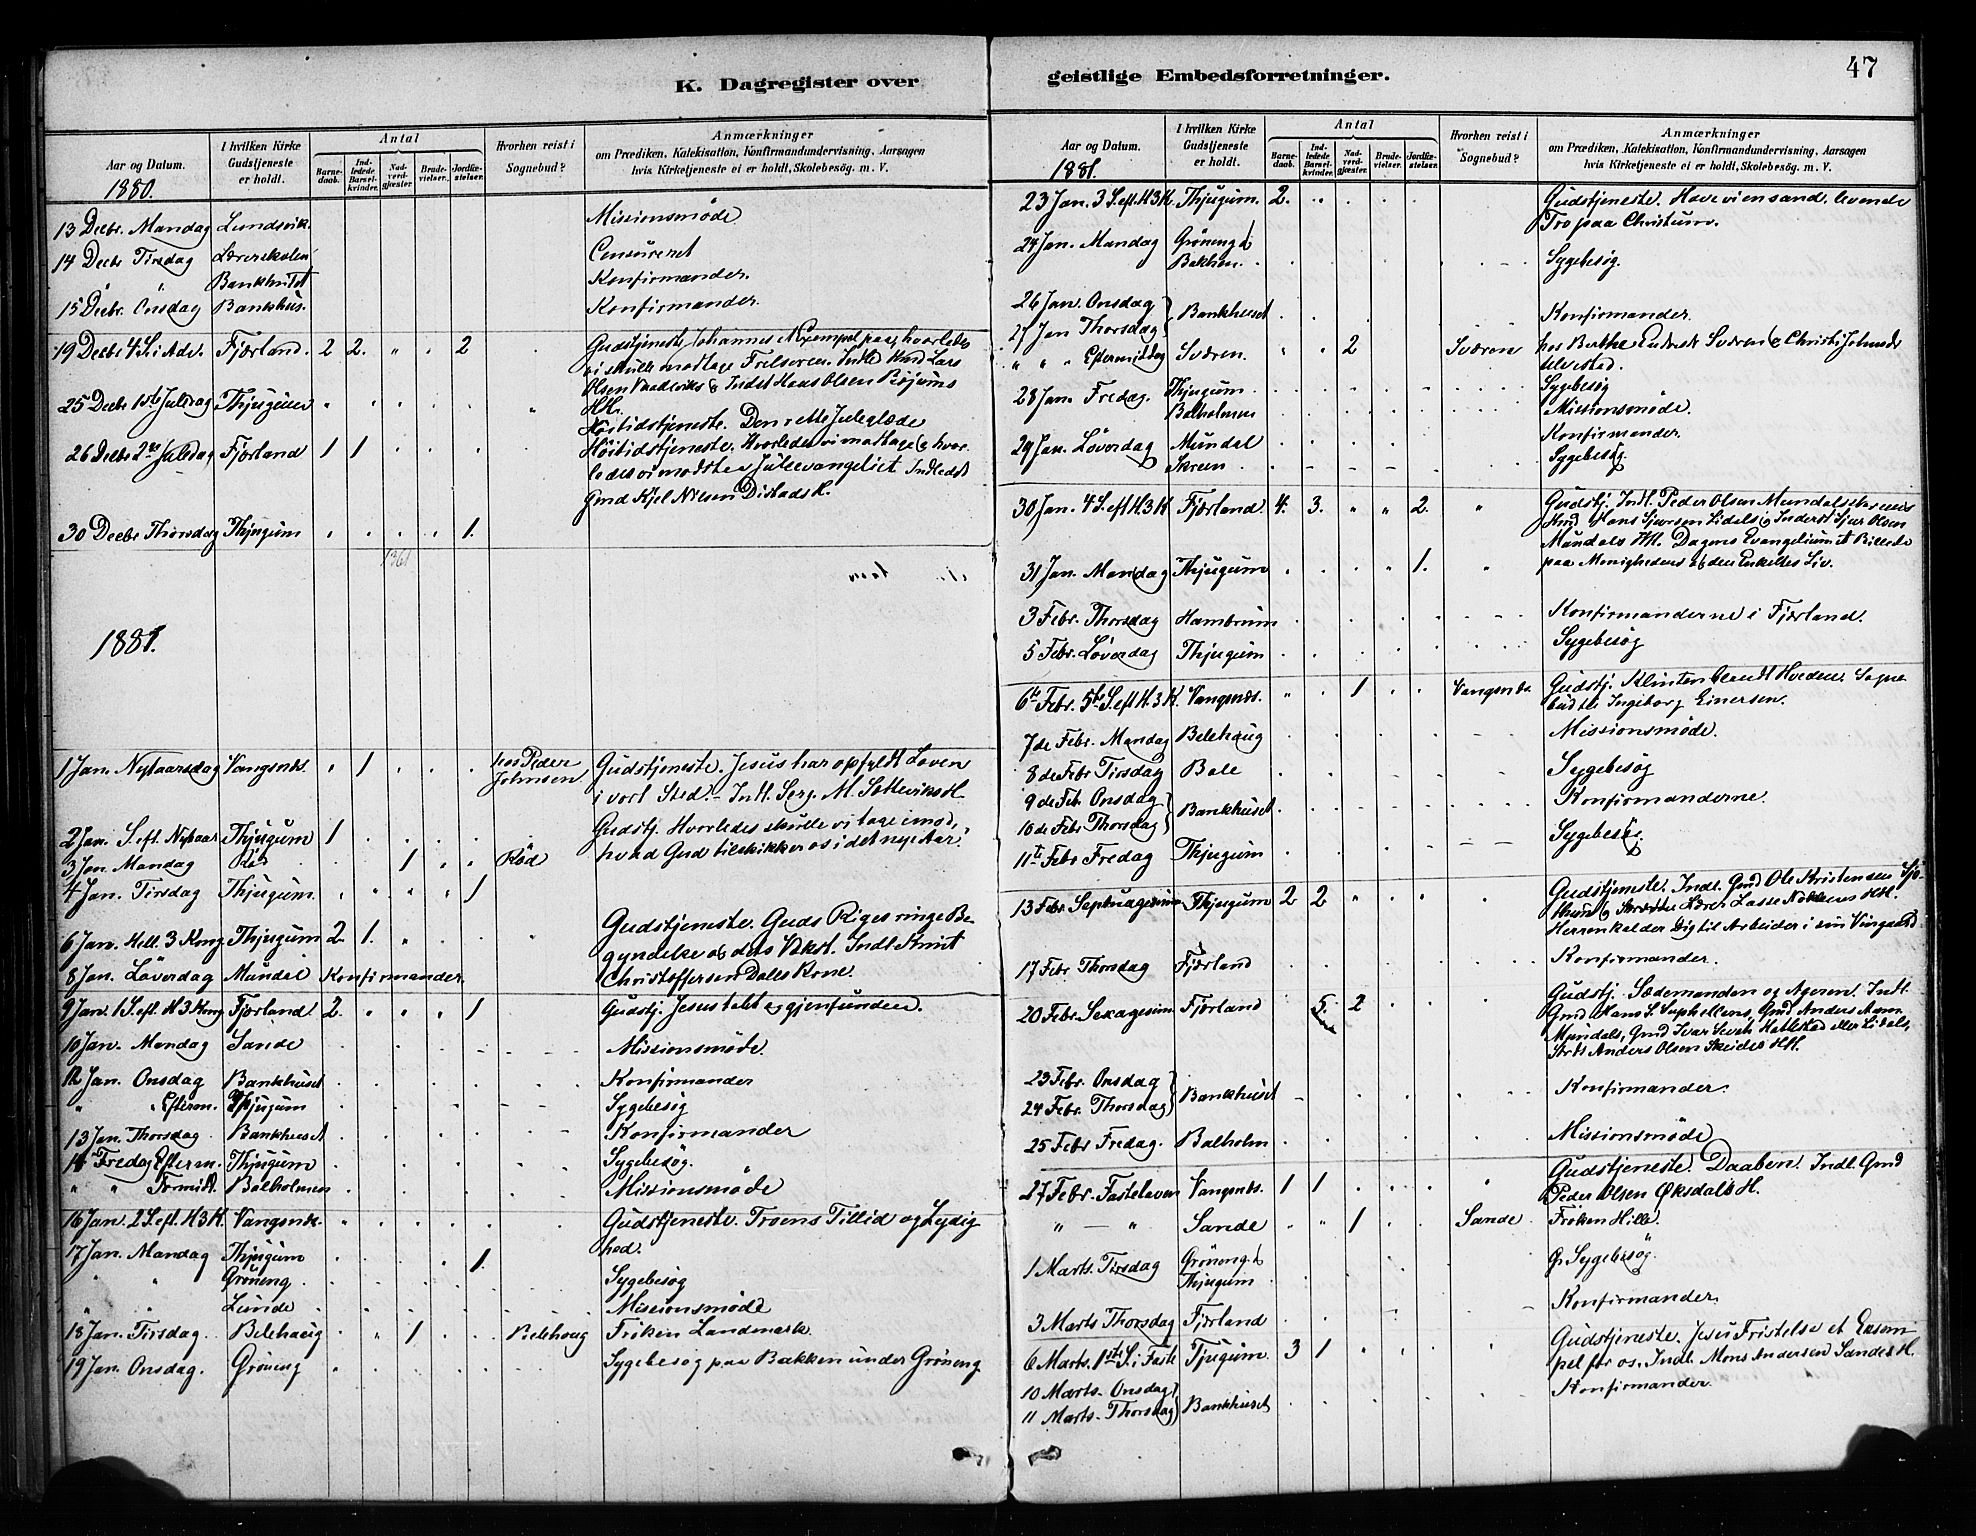 K. Dagregister over
Aar og Datum.
1880.
I hvilken Kirke Gudstjeneste er holdt.
Antal
Barnedaab.
Indledede Barselkvinder.
Nadverdgjæster.
Brudevielser.
Jordfæstelser.
Hvorhen reist i Sognebud?
Anmærkninger
om Prædiken, Katekisation, Konfirmandundervisning, Aarsagen
hvis Kirketjeneste ei er holdt, Skolebesøg. m. V.
13 Decbr. Mandag Lundsvik. Missionsmøde
14 Decbr Tirsdag Lærerskolen Censureret
" " Bankhuset Konfirmander.
15 Decbr. Onsdag Bankhus. Konfirmander.
19 Decbr 4 S. i Adv. Fjærland. 2 2. " . 2 Gudstjeneste Johannes Exempel paa, hvorledes
vi skulle modtage Frelseren. Indl. Lars
Olsen Indst Hans Olsen Bøjums
HH.
25 Decbr 1ste Juledag Thjugum Høitidstjeneste. Den rette Juleglæde
26 Decbr 2den Juledag Fjærland 1 1 Høitidstjeneste. Hvorledes vi modtage & hvorledes vi Juleevangeliet Indledet
Gmd Kjel Nilsen Distads H.
30 Decbr Thorsdag Thjugum 1.
1361
1881.
1 Jan. Nytaarsdag Vangsnæs. " 1 hos Peder Johnsen Gudstjeneste. Jesus har opfyldt Loven
i vort Sted. - Indl. Serg. M. Sætteviks H.
2 Jan. S. eft. Nytaar Thjugum 1 Gudstj. Hvorledes skulle vi tage imod,
3 Jan. Mandag Rød 1 Rød hvad Gud tilskikker os i det nye Aar.
4 Jan. Tirsdag Thjugum. 1
6 Jan. Hell. 3 Kong. Thjugum 2. 1. Gudstjeneste. Guds Riges ringe Begyndelse & dets Vækst. Indl. Knut
8 Jan. Løverdag Mundal Konfirmander. Christoffersen Dales Kone.
9 Jan. 1 S. eft. H 3 Kong Fjærland. 2. " " " 1 Gudstj. Jesus tabt og gjenfunden.
10 Jan. Mandag Sande Missionsmøde.
12 Jan. Onsdag Bankhuset Konfirmander
" " Efterm. Thjugum Sygebesøg
13 Jan. Thorsdag. Bankhuset Konfirmander
14 Fredag Efterm. Thjugum Sygebesøg.
" " Formidd. Balholmen Missionsmøde
16 Jan. 2 S. eft. H 3 K. Vangsnæs. Gudstjeneste. Troens Tillid og Lydighed.
17 Jan. Mandag Thjugum 1.
" " Grøneng Sygebesøg
" " Lunde Missionsmøde
18 Jan. Tirsdag. Belehaug 1 Belehaug Frøken Landmark.
19 Jan. Onsdag. Grøneng Sygebesøg paa Bakken under Grøneng

geistlige Embedsforretninger.
47
Aar og Datum.
1881.
I hvilken Kirke Gudstjeneste er holdt.
Antal
Barnedaab.
Indledede Barselkvinder.
Nadverdgjæster.
Brudevielser.
Jordfæstelser.
Hvorhen reist i Sognebud?
Anmærkninger
om Prædiken, Katekisation, Konfirmandundervisning, Aarsagen
hvis Kirketjeneste ei er holdt, Skolebesøg. m. V.
23 Jan. 3 S. eft. H 3 K. Thjugum. 2. Gudstjeneste. Have vi en sand levende
Tro paa Christum.
24 Jan. Mandag Grøneng &
Bakken. Sygebesøg.
26 Jan. Onsdag
27 Jan Thorsdag Bankhuset Konfirmander.
" " Eftermiddag Sværen. " " 2 Sværen hos Berthe Sværen
28 Jan. Fredag. Thjugum Sygebesøg
Balholmen Missionsmøde.
29 Jan. Løverdag Mundal Konfirmander.
Skreen Sygebesøg.
30 Jan. 4 S. eft H 3 K Fjærland. 4. 3. " " 2. " Gudstj. Indl. Peder Olsen
Hans Sjursen Lidals & Inderst Sjur Olsen
Mundals HH. Dagens Evangelium et Billede
31 Jan. Mandag Thjugum 1. paa Menighedens & den Enkeltes Liv.
3 Febr. Thorsdag Hambrum Konfirmanderne i Fjærland.
5 Febr. Løverdag Thjugum Sygebesøg
6te Febr. 5te S. eft H. 3 K. Vangsnæs. " . 1 Vangsnæs Gudstj. Klinten blandt Hveden. Sognebud til Ingeborg Einersen.
7de Febr. Mandag Belehaug Missionsmøde.
8de Febr Tirsdag Bale Sygebesøg
9de Feb. Onsdag
10de Febr Thorsdag Bankhuset Konfirmanderne.
11te Febr Fredag Thjugum Sygebesøg.
13 Febr. Septuagesima Thjugum 2 2 Gudstjeneste. Indl. Gmd Ole Kristensen
& Lærer Lasse HH.
Herren kalder Dig til Arbeider i sin Viingaard.
17 Febr Thorsdag Fjærland Konfirmander.
20 Febr. Sexagesima Fjærland 5. 2 Gudstj. Sædemanden og Ageren. Indl.
Gmd Hans S. Suphellens, Gmd Anders
Mundals, Gmd Ivar eller Lidals,
Anders Olsen HH.
23 Febr. Onsdag
24 Febr. Thorsdag Bankhuset Konfirmander.
25 Febr Fredag. Balholm Missionsmøde
27 Febr. Fastelaven Vangsnæs. 1 1 Gudstjeneste. Daaben. Indl. Gmd
Peder Olsen Øksdals H.
" — " Sande 1 Sande. Frøken Hille.
1 Marts. Tirsdag Grøneng &
Thjugum Sygebesøg
3 Marts Thorsdag Fjærland Konfirmander.
6 Marts. 1ste S. i Faste Tjugum. 3 1 Gudstjeneste. Jesu Fristelse et Exempel for os. Indl. Mons Andersen Sandes H.
10 Marts. Onsdag
11 Marts. Thorsdag Bankhuset Konfirmander.